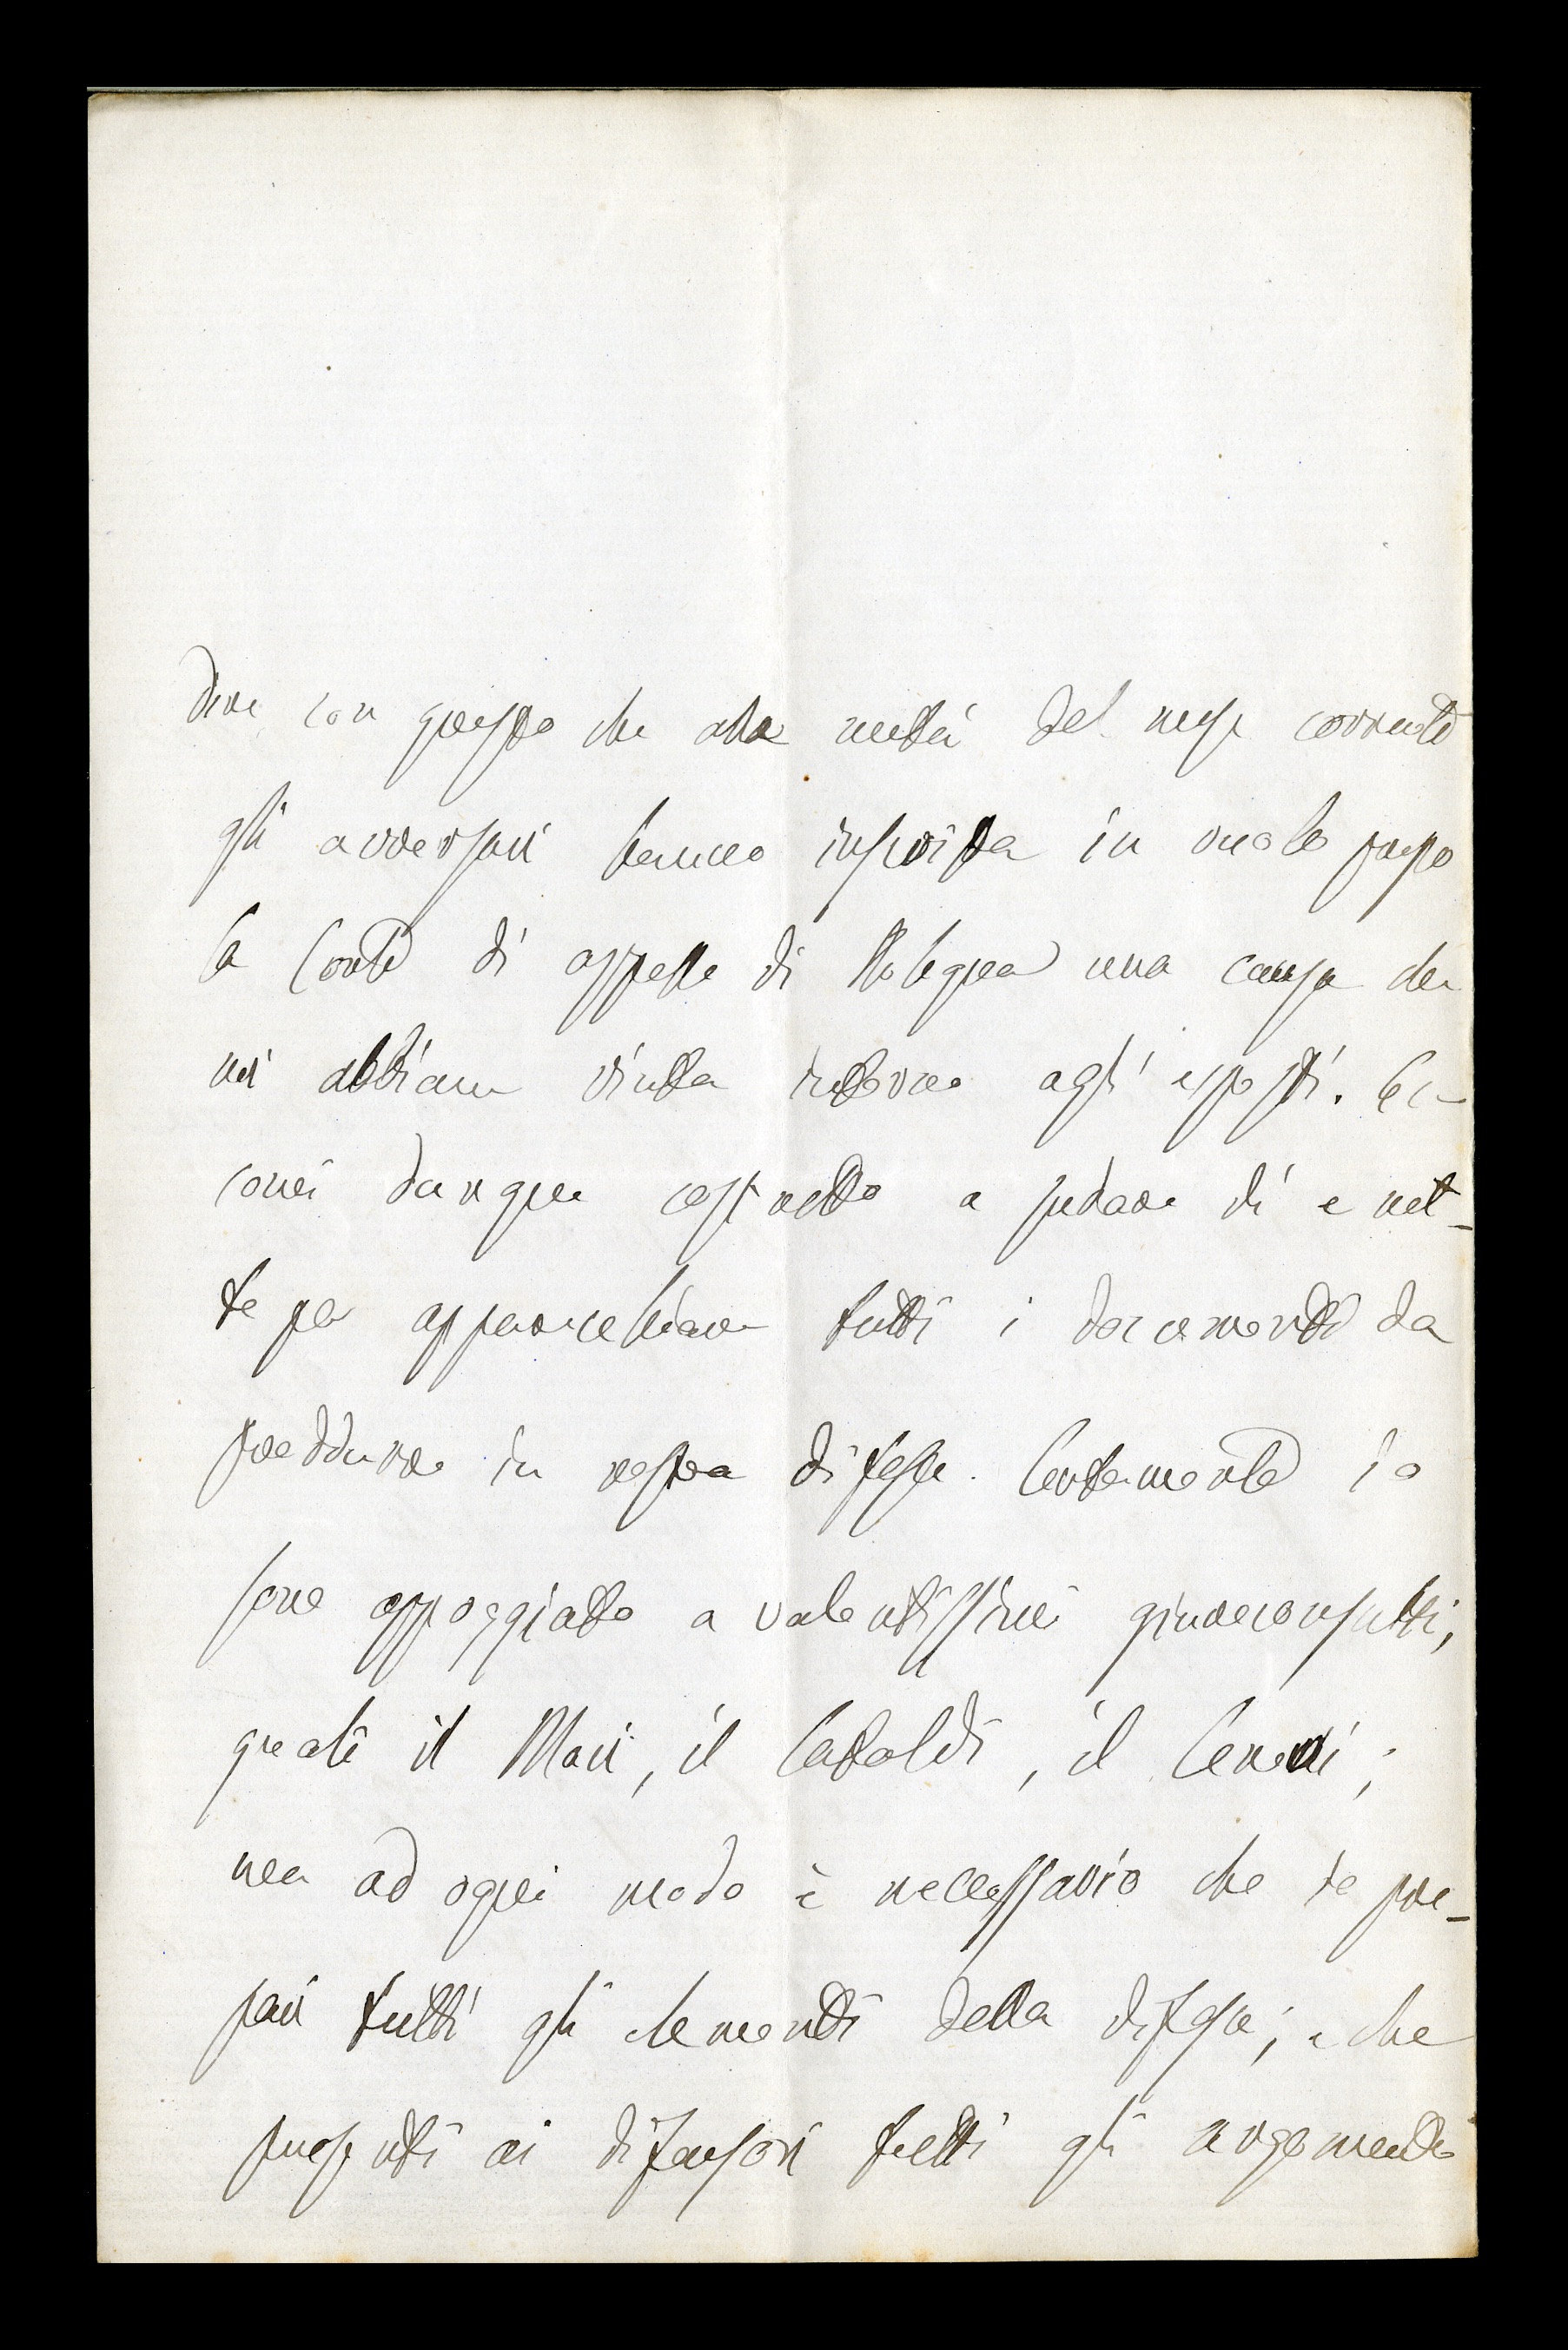 dire con questo che alla metà del mese corrente
gli avversari hanno inscritta in ruolo presso
la Corte di appello di Bologna una causa che
noi abbiam vinta intorno agli esposti. Ec-
comi dunque costretto a sudare dì e not-
te per apparecchiare tutti i documenti da
produrre in nostra difesa. Certamente io
sono appoggiato a valentissimi giureconsulti,
quali il Mari, il Cataldi, il Ceneri;
ma ad ogni modo è necessario che io pre-
pari tutti gli elementi della difesa; e che
presenti ai difensori tutti gli argomenti